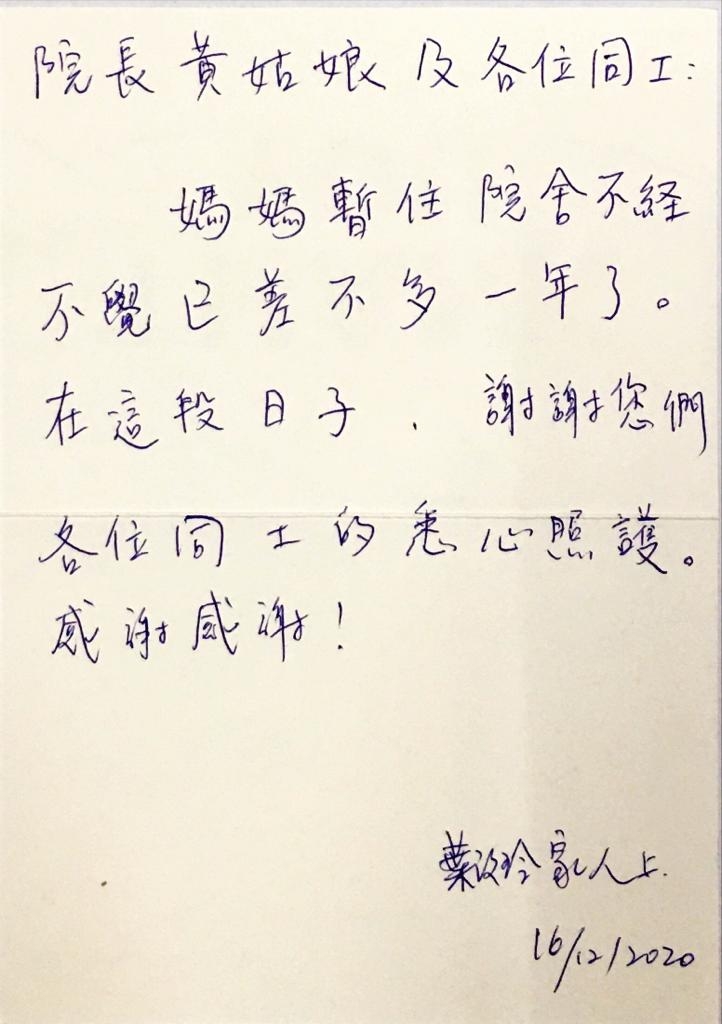 院長黃姑娘及各位同工:
媽媽暫住院舍不経
不覺已差不多一年了。
在這段日子，謝謝您們
各位同工的悉心照護。
感謝感謝!
葉玲家人上.
16/12/2020